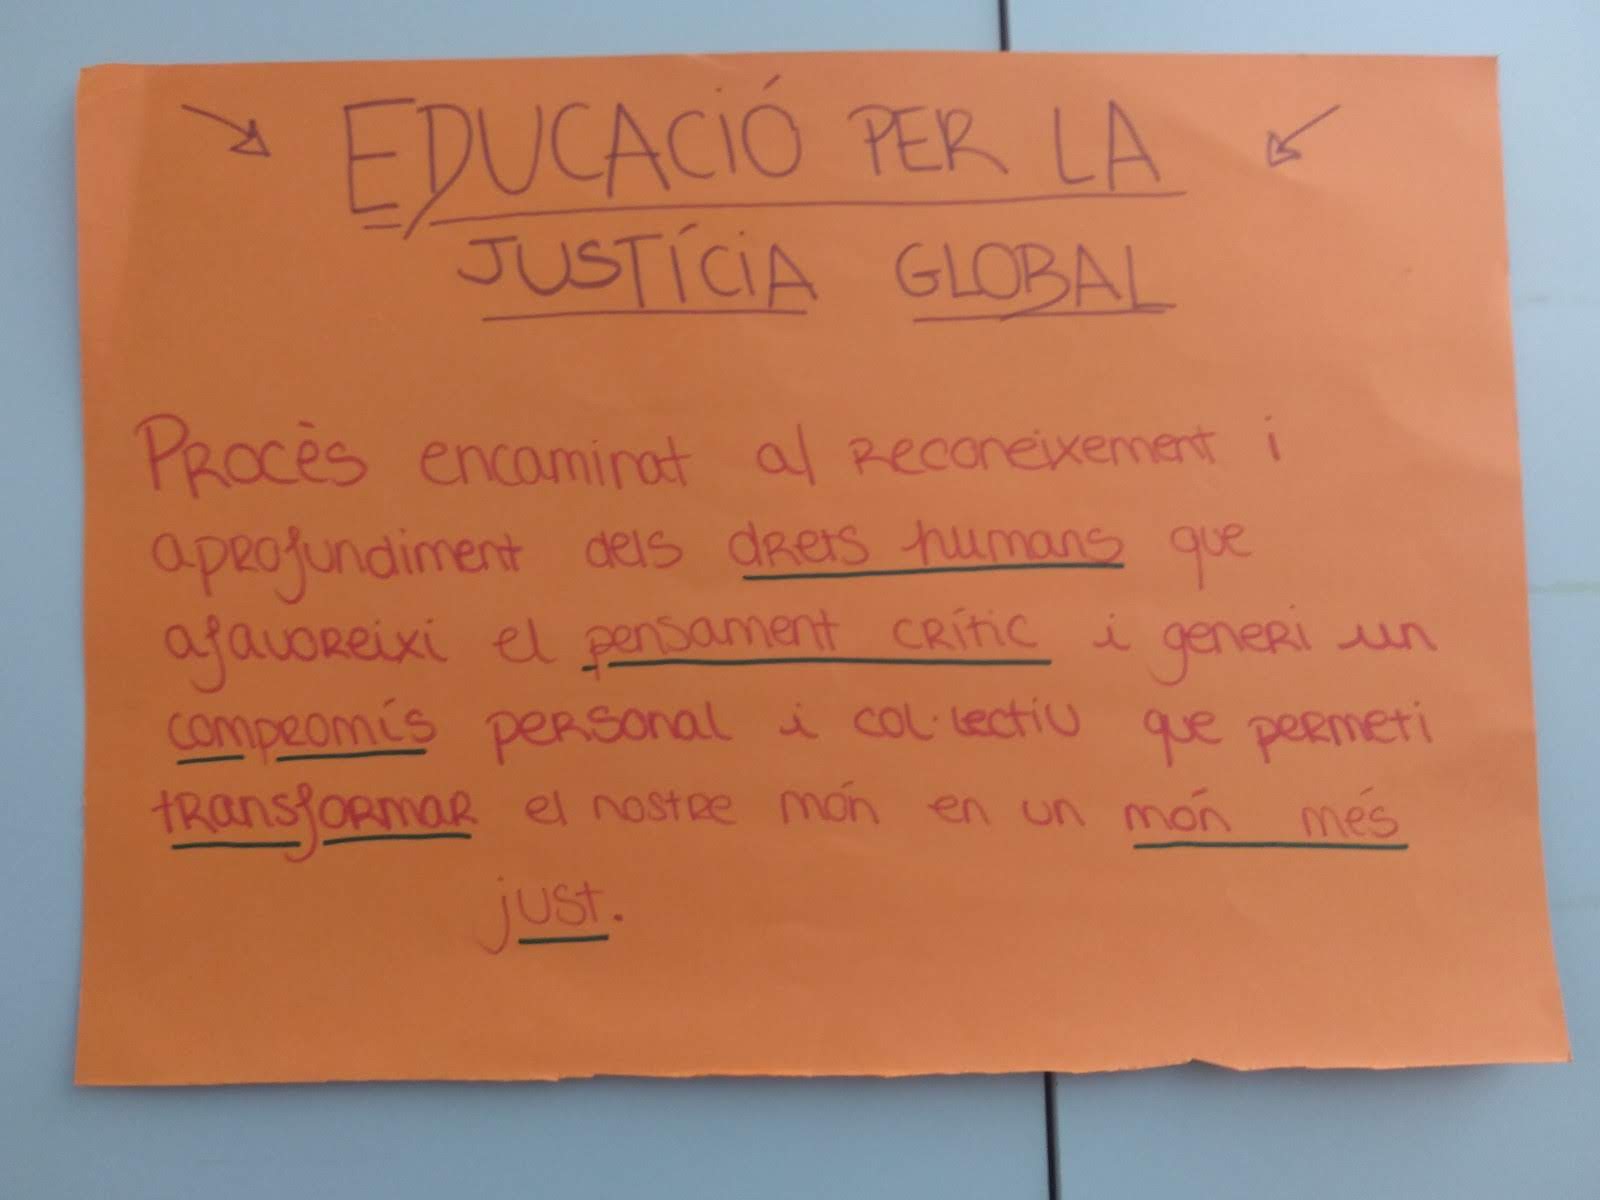 EDUCACIÓ PER LA
JUSTÍCIA GLOBAL
PROCÈS encaminat al Reconeixement i
aprofundiment dels drets humans que
afavoreixi el pensament crític i generi un
compromís personal i col·lectiu que permeti
transformar el nostre món en un món més
just.